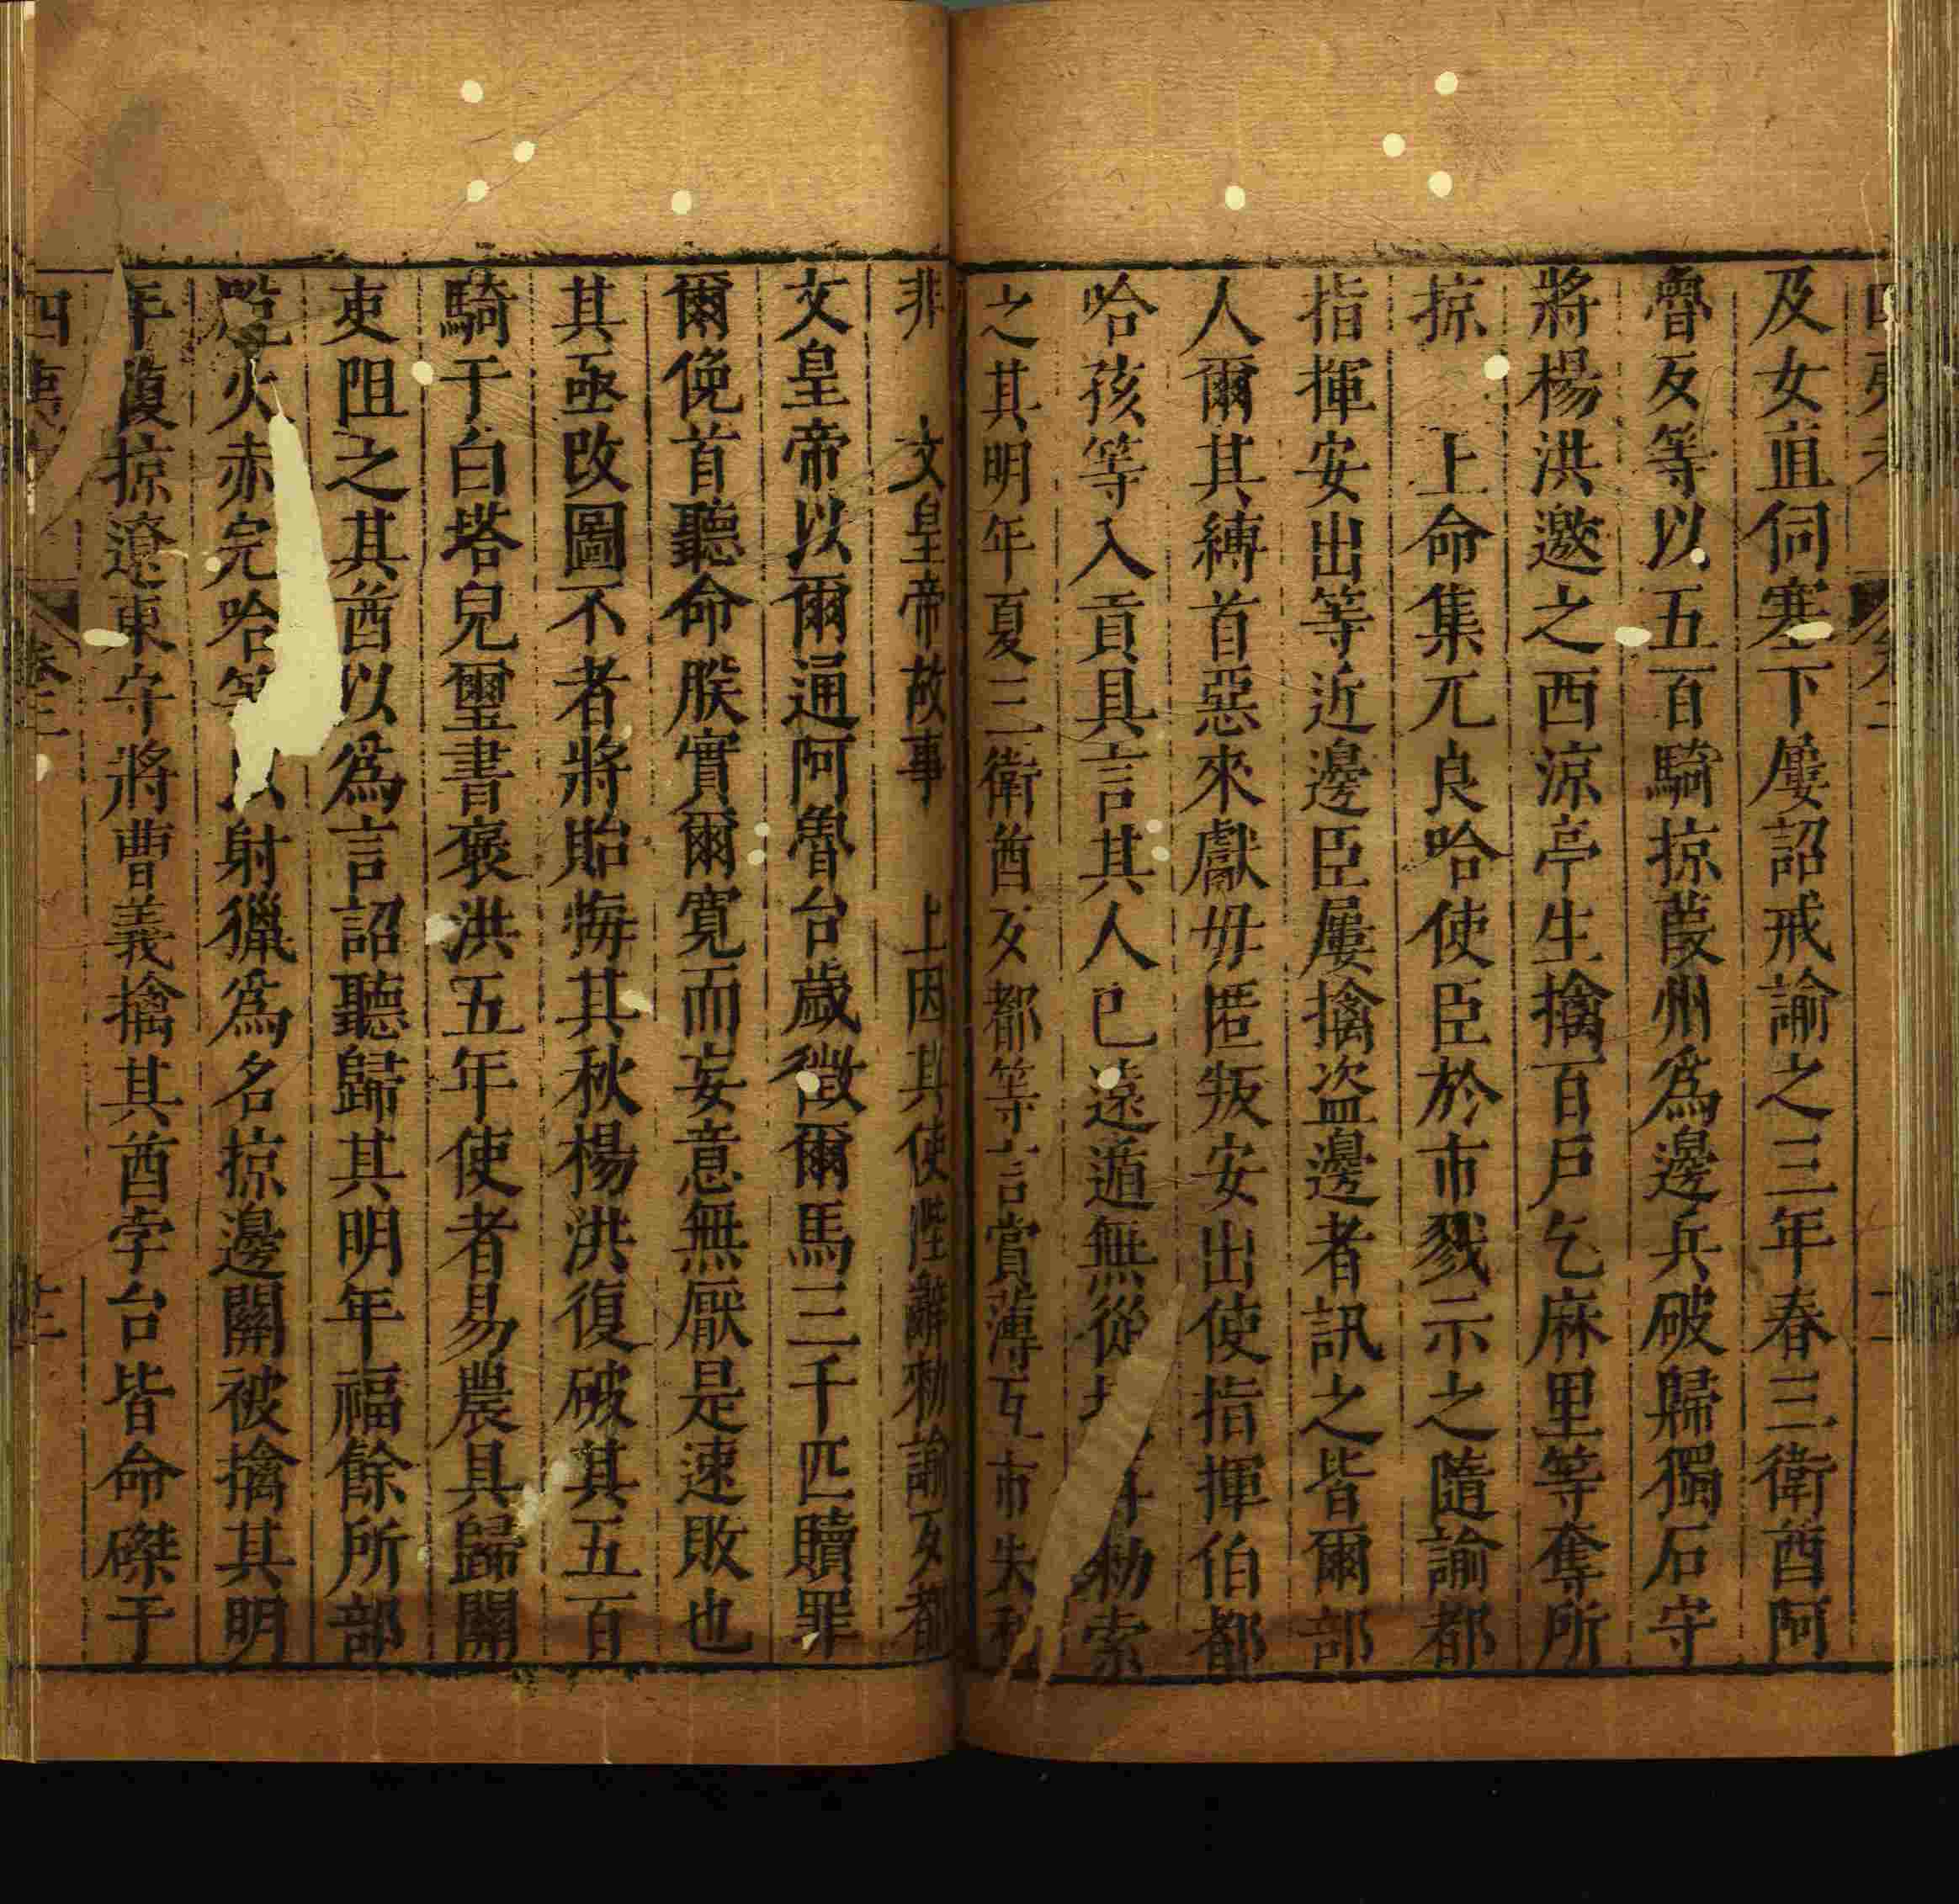 及女直伺塞下屢詔戒諭之三年春三衛酋阿
魯友等以五百騎掠葭州爲邊兵破歸獨石守
將楊洪邀之西涼亭生擒百戶乞麻里等奪所
掠 上命集兀良哈使臣於市戮示之隨諭都
指揮安出等近邊臣屢擒盜邊者訊之皆爾部
人爾其縛首惡來獻毋匿叛安出使指揮伯都
哈孩等入貢具言其人已遠遁無從 勑索
之其明年夏三衛酋友都等言賞薄互市失利
非 文皇帝故事 上因其使陛辭勑諭友都
文皇帝以爾通阿魯台歲徵爾馬三千匹贖罪
爾俛首聽命朕實爾寬而妄意無厭是速敗也
其亟改圖不者將貽悔其秋楊洪復破其五百
騎于白塔兒璽書褒洪五年使者易農具歸關
吏阻之其酋以爲言詔聽歸其明年福餘所部
火赤完哈 射獵爲名掠邊關被擒其明
年復掠遼東守將曹義擒其酋孛台皆命磔于
四夷 卷三